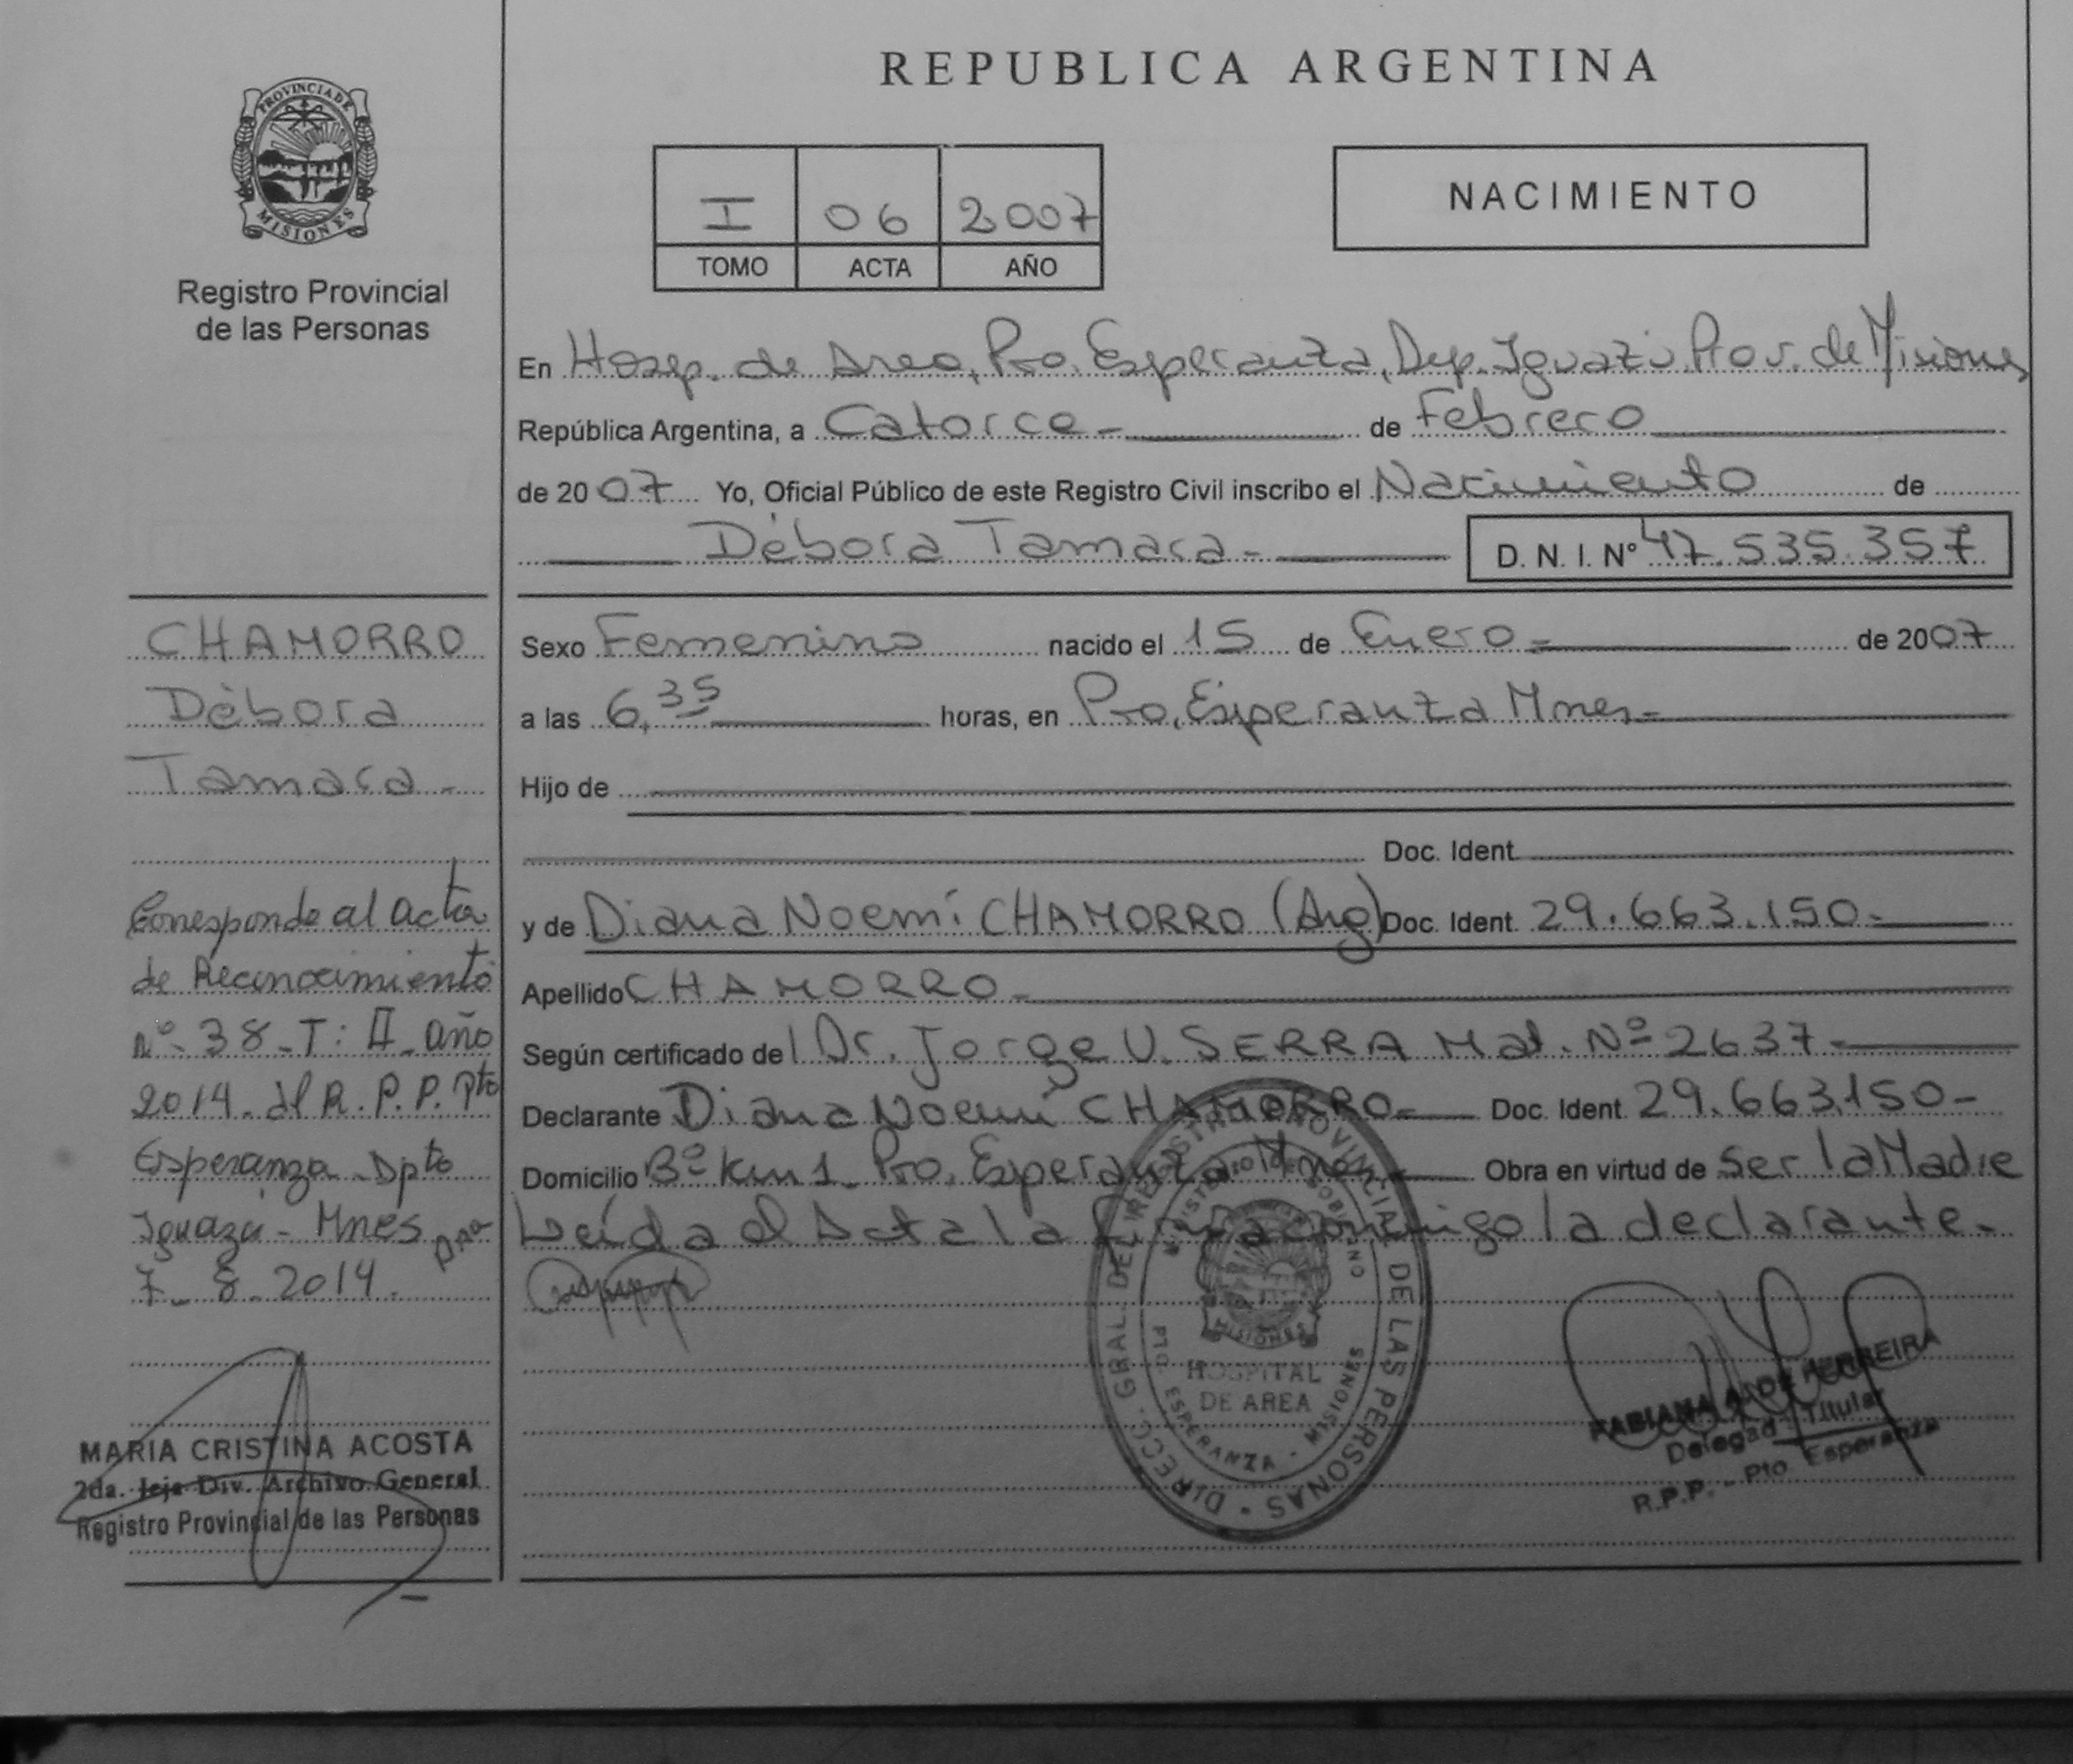 REPUBLICA ARGENTINA
PROVINCIA DE
MISIONES
Registro Provincial
de las Personas
I 06 2007
TOMO ACTA AÑO
NACIMIENTO
En Hosp. de Area, Pto. Esperanza, Dep. Iguazú Prov. de Misiones
República Argentina, a Catorce - de Febrero
de 2007 Yo, Oficial Público de este Registro Civil inscribo el Nacimiento de
Débora Tamara - D. N. I. Nº 47.535.357
Sexo Femenino nacido el 15 de Enero - de 2007
a las 6,35 horas, en Pto, Esperanza Mnes -
Hijo de
Doc. Ident.
y de Diana Noemí CHAMORRO (Arg) Doc. Ident. 29.663.150 -
Apellido CHAMORRO -
Según certificado del Dr. Jorge U. SERRA Mat. Nº 2637 -
Declarante Diana Noemí CHAMORRO - Doc. Ident. 29.663.150 -
Domicilio Bº km 1 - Pto, Esperanza Mnes - Obra en virtud de Ser la Madre
Leída el Acta la firma conmigo la declarante -
CHAMORRO
Débora
Tamara -
Corresponde al acta
de Reconocimiento
Nº - 38 - T: II - año
2014 - del R. P. P. Pto
Esperanza - Dpto
Iguazú - Mnes
7 - 8 - 2014.
MARIA CRISTINA ACOSTA
2da. Jeja Div. Archivo General
Registro Provincial de las Personas
DIRECC. GRAL. DEL REGISTRO PROVINCIAL DE LAS PERSONAS
MINISTERIO DE GOBIERNO
MISIONES
HOSPITAL
DE AREA
PTO. ESPERANZA - MISIONES
FABIANA A. DE HERREIRA
Delegad Titular
R.P.P. - Pto Esperanza